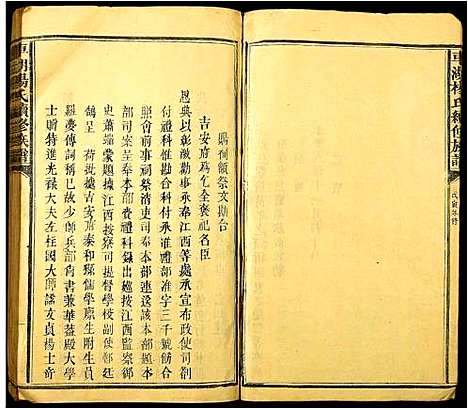 車湖楊氏續修族譜
戊寅年修
車湖楊氏續修族譜
賜祠額祭文勘合
吉安府為乞全褒祀名臣
恩典以彰激勸事承奉江西等處承宣布政使司劄
付禮科付承准禮部准字三千號勘合
照會前事祠祭清吏司奉本部連送該本部題本
部司案呈奉本部禮科錄出巡按江西監察御
題據江西按察司提督學校副使邵
鴿呈 荷撓據吉安府泰和縣儒學廩生附生員
羅姜傳詞稱已故少師兵部尚書兼華蓋殿大學
士贈特進光祿大夫左柱國大師謚文貞楊士奇